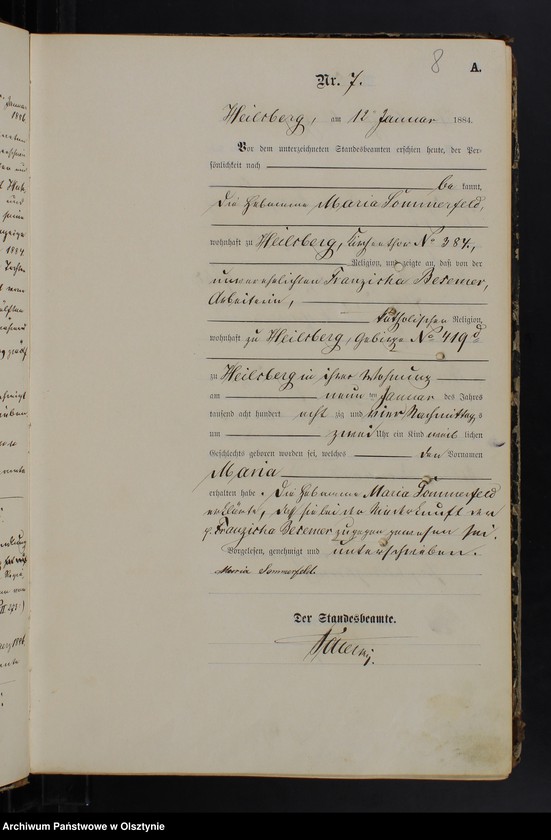 8
A.
Nr. 7.
Heilsberg, am 12 Januar 1884.
Vor dem unterzeichneten Standesbeamten erschien heute, der Per-
sönlichkeit nach
be kannt,
die Hebamme Maria Sommerfeld,
wohnhaft zu Heilsberg, Kirchenthor No 284,
Religion, und zeigte an, daß von der
unverehelichten Franziska Besemer,
Arbeiterin,
katholischer Religion,
wohnhaft zu Heilsberg, No 419d
zu Heilsberg in ihrer Wohnung
am neun ten Januar des Jahres
tausend acht hundert acht zig und vier Nachmittag s
um zwei Uhr ein Kind weib lichen
Geschlechts geboren worden sei, welches den Vornamen
Maria
erhalten habe. Die Hebamme Maria Sommerfeld
erklärte, daß sie bei der Niederkunft der
p. Franziska Besemer zugegen gewesen sei.
Vorgelesen, genehmigt und unterschrieben.
Maria Sommerfeld
Der Standesbeamte.
Archiwum Państwowe w Olsztynie